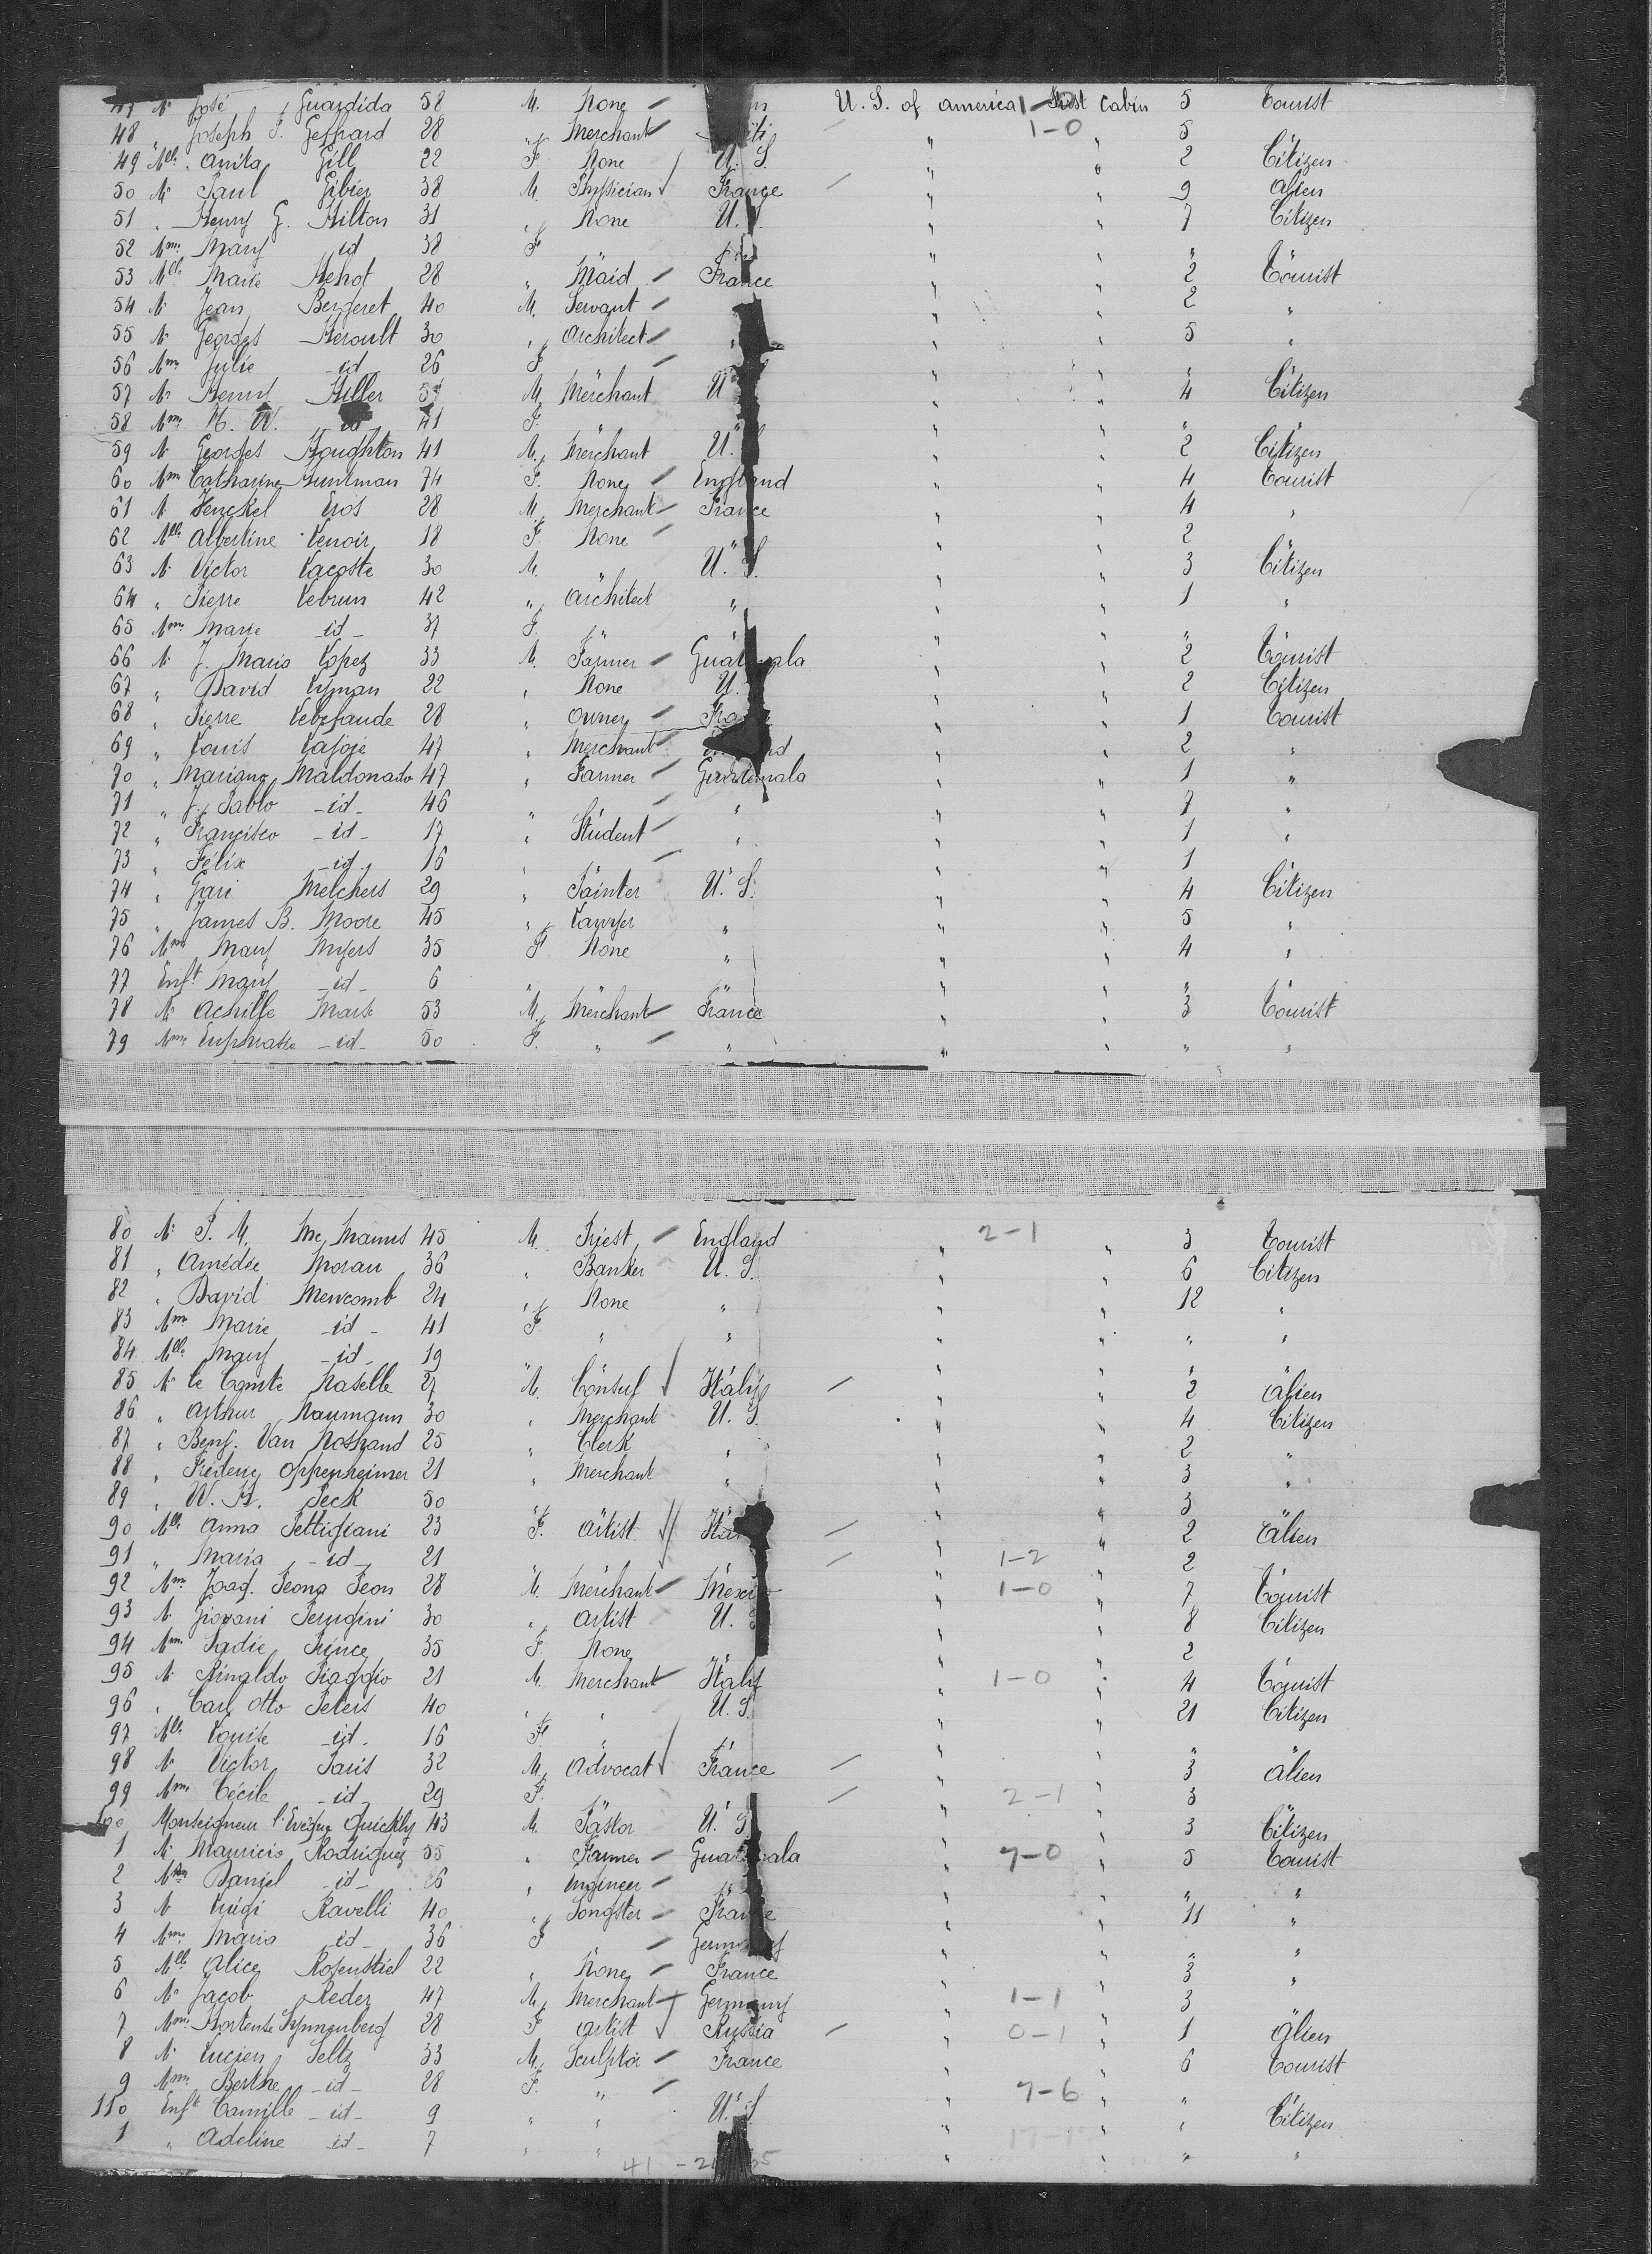 47 Mr José Guardida 58 M. None U. S. of america 1-0 First Cabin 5 Tourist
48 " Joseph F. Geffrard 28 " Merchant 1-0 " 5
49 Mlle Anita Gill 22 F. None U. S " " 2 Citizen
50 Mr Paul Gibier 38 M. Physician France " " 9 Alien
51 " Henry G. Hilton 31 " None U. " " 7 Citizen
52 Mme Mary id 38 F " " " "
53 Mlle Marie Henot 28 " Maid France " " 2 Tourist
54 Mr Jean Bergeret 40 M. Servant " " 2 "
55 Mr Georges Herault 30 " Architect " " 5 "
56 Mme Julie id 26 F " " " "
57 Mr Henry Hiller M. Merchant U " " 4 Citizen
58 Mme 41 F. " " " "
59 Mr Georges Houghton 41 M. Merchant U. " " 2 Citizen
60 Mme Catharine 74 F. None England " " 4 Tourist
61 Mr Henckel 28 M. Merchant France " " 4 "
62 Mlle Albertine Lenoir 18 F. None " " 2
63 Mr Victor Lacoste 30 M. " U. S. " " 3 Citizen
64 " Pierre Lebrun 42 " Architect " " " 1 "
65 Mme Marie id 37 F. " " " " "
66 Mr J. Maria Lopez 33 M. Farmer Guatemala " " 2 Tourist
67 " David Lyman 22 " None U. " " 2 Citizen
68 " Pierre 28 " Owner " " 1 Tourist
69 " Louis 47 " Merchant " " 2 "
70 " Mariano Maldonado 47 " Farmer Guatemala " " 1 "
71 " J. Pablo id 46 " " " " " 7 "
72 " Francisco id 17 " Student " " " 1 "
73 " Félix id 16 " " " " " 1 "
74 " Gari Melchers 29 " Painter U. S. " " 4 Citizen
75 " James B. Moore 45 " Lawyer " " " 5 "
76 Mme Mary Myers 35 F. None " " " 4 "
77 Enft Mary id 6 " " " " " "
78 Mr Achille 53 M. Merchant France " " 3 Tourist
79 Mme id 50 F. " " " " " "
80 Mr P. M. Mc Manus 45 M. Priest England 2-1 " " 3 Tourist
81 " Amédée Moran 36 " Banker U. S. " " 6 Citizen
82 " David Newcomb 24 " None " " " 12 "
83 Mme Marie id 41 F. " " " " " "
84 Mlle Mary id 19 " " " " " "
85 Mr le Comte Naselle 27 M. Consul Italy " " 2 Alien
86 " Arthur Naumann 30 " Merchant U. S. " " 4 Citizen
87 " Benj. Van Nostrand 25 " Clerk " " " 2 "
88 " Frederic Oppenheimer 21 " Merchant " " " 3 "
89 " W. H. Peck 50 " " " " " 3
90 Mlle Anna Pettigiani 23 F. Artist " " 2 Alien
91 " Maria id 21 1-2 " " 2
92 Mme Joaq. Peon 28 M. Merchant Mexico 1-0 " " 7 Tourist
93 Mr Giovani Perugini 30 " Artist U. S " " 8 Citizen
94 Mme Sadie Prince 35 F. None " " 2
95 Mr Rinaldo Piaggio 21 M. Merchant Italy 1-0 " " 4 Tourist
96 " Carl Otto Peters 40 " " U. S. " " 21 Citizen
97 Mlle Louise id 16 F. " " " " " "
98 Mr Victor Paris 32 M. Advocat France " " 3 Alien
99 Mme Cécile id 29 F. 2-1 " " 3
100 Monseigneur l'Evêque 43 M. Pastor U. S " " 3 Citizen
1 Mr Mauricio Rodriguez 55 " Farmer Guatemala 7-0 " " 5 Tourist
2 Daniel id " Engineer " " " "
3 Mr Luigi Ravelli 40 " Songster France " " 11 "
4 Mme Maria id 36 F Germany " " " "
5 Mlle Alice Rosenstiel 22 " None France " " 3 "
6 Mr Jacob Reder 47 M. Merchant Germany 1-1 " " 3
7 Mme Hortense 28 F. Artist Russia 0-1 " " 1 Alien
8 Mr Lucien Seltz 33 M. Sculptor France " " 6 Tourist
9 Mme Berthe id 28 F. " " 7-6 " " "
110 Enft Camille id 9 " " U. S " " " Citizen
1 " Adeline id 7 " " " " " "